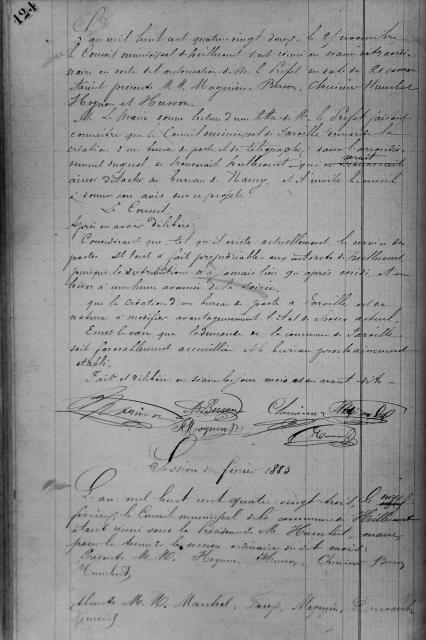 124
L'an mil huit cent quatre vingt deux, le 25 novembre
le Conseil municipal de Heillecourt s'est réuni en séance extraordi-
naire en vertu de l'autorisation de Mr le Préfet en date du 20 courant
Étaient présents M.M. Magnier, Berson, Chrisment Humbert
Hognon et Husson.
Mr le Maire donne lecture d'une lettre de Mr le Préfet faisant
connaître que le Conseil municipal de Jarville demande la
création d'un bureau de poste et de télégraphe, dans l'arrondis-
sement duquel se trouverait Heillecourt qui serait
ainsi détaché du bureau de Nancy, et il invite le Conseil
à donner son avis sur ce projet.
Le Conseil,
Après en avoir délibéré,
Considérant que tel qu'il existe actuellement le service des
postes est tout à fait préjudiciable aux intérêts de Heillecourt
puisque la distribution n'a jamais lieu qu'après midi, et en
hiver à une heure avancée de la soirée,
que la Création d'un bureau de poste à Jarville est de
nature à modifier avantageusement l'état de choses actuel
Emet le vœu que la demande de la commune de Jarville
soit favorablement accueillie et le bureau prochainement
établi.
Fait et délibéré en séance les jour mois et an avant dits
Berson Chrisment
Hognon
Session de février 1883
L'an mil huit cent quatre vingt trois, le onze
février, le Conseil municipal de la commune de Heillecourt
étant réuni sous la Présidence de M. Humbert, maire,
pour la tenue de la session ordinaire dudit mois.
Présents M.M. Hognon, Husson, Chrisment Berson
Humbert
Absents M.M. Maréchal,